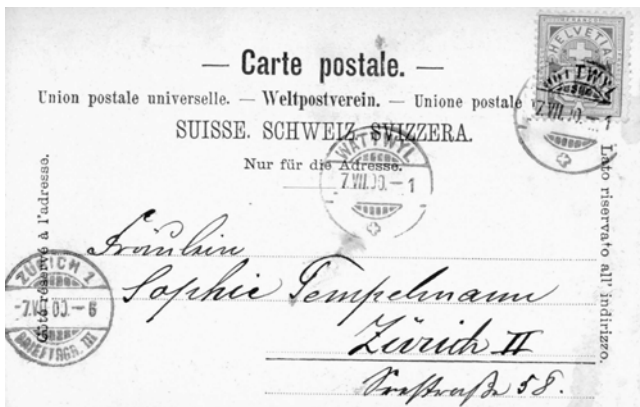 — Carte postale. —
Union postale universelle. — Weltpostverein. — Unione postale
SUISSE. SCHWEIZ. SVIZZERA.
Nur für die Adresse.
Côté réservé à l'adresse.
Lato riservato all' indirizzo.
HELVETIA
WATTWYL
7.VII.00.-1
WATTWYL
7.VII.00.-1
ZÜRICH 2
-7.VII.00.-6
BRIEFTRGR. III
Fräulein
Sophie Tempelmann
Zürich II
Seestraße 58.